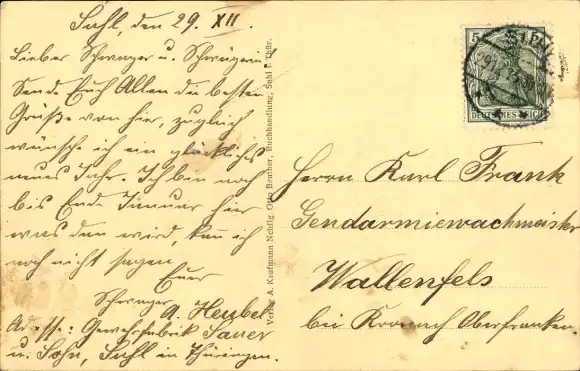 Suhl, den 29. XII.
Lieber Schwager u. Schwägerin!
Sende Euch Allen die besten
Grüße von hier, zugleich
wünsche ich ein glückliches
neues Jahr. Ich bin noch
bis Ende Januar hier
was dan wird, kan ich
noch nicht sagen
Euer
Schwager
A. Heubel
Adresse: Gewehrfabrik Sauer
u. Sohn, Suhl in Thüringen.
Verlag A. Kaufmann Nchflg. Otto Beuther, Buchhandlung, Suhl i. Thür.
5
DEUTSCHES REICH
Herrn Karl Frank
Gendarmiewachmeister
Wallenfels
bei Kronach Oberfranken